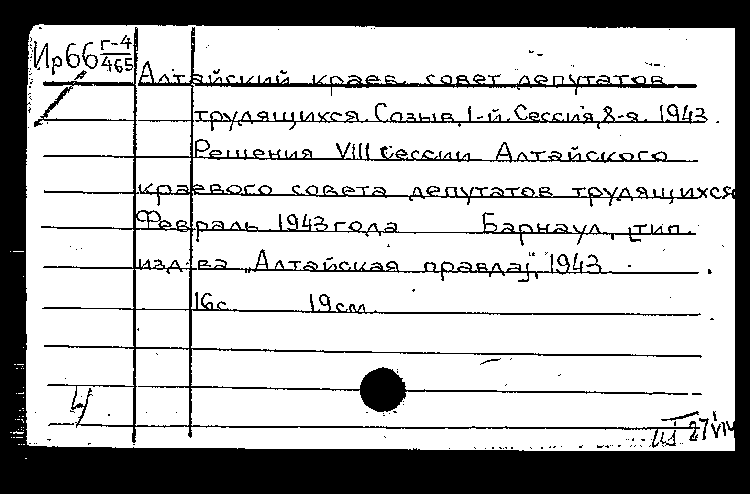 Ир66 г-4
465
Алтайский краев. совет депутатов
трудящихся. Созыв, 1-й. Сессия, 8-я. 1943.
Решения VIII сессии Алтайского
краевого совета депутатов трудящихся
Февраль 1943 года Барнаул, [тип.
изд-ва „Алтайская правда]", 1943.
16с. 19см.
27